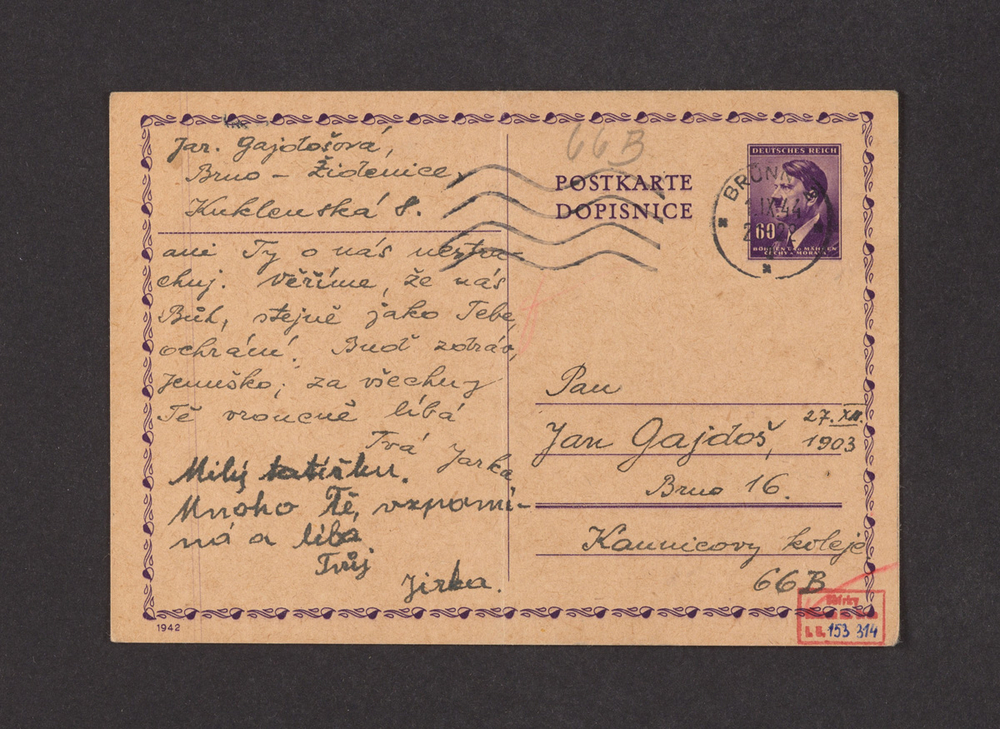 Jar. Gajdošová,
Brno – Židenice,
Kuklenská 8.
ani Ty o nás nestra-
chuj. Věříme, že nás
Bůh, stejně jako Tebe,
ochrání. Buď zdráv,
Jeníško, za všechny
Tě vroucně líbá
Tvá Jarka
Milý tatíčku.
Mnoho Tě, vzpomí-
ná a líbá
Tvůj
Jirka.
1942
66B
POSTKARTE
DOPISNICE
DEUTSCHES REICH
60
BÖHMEN U. MÄHREN
ČECHY A MORAVA
BRÜNN
IX.44
Pan
Jan Gajdoš,
27. XII.
1903
Brno 16.
Kaunicovy koleje
66B
Sbírky
153 314